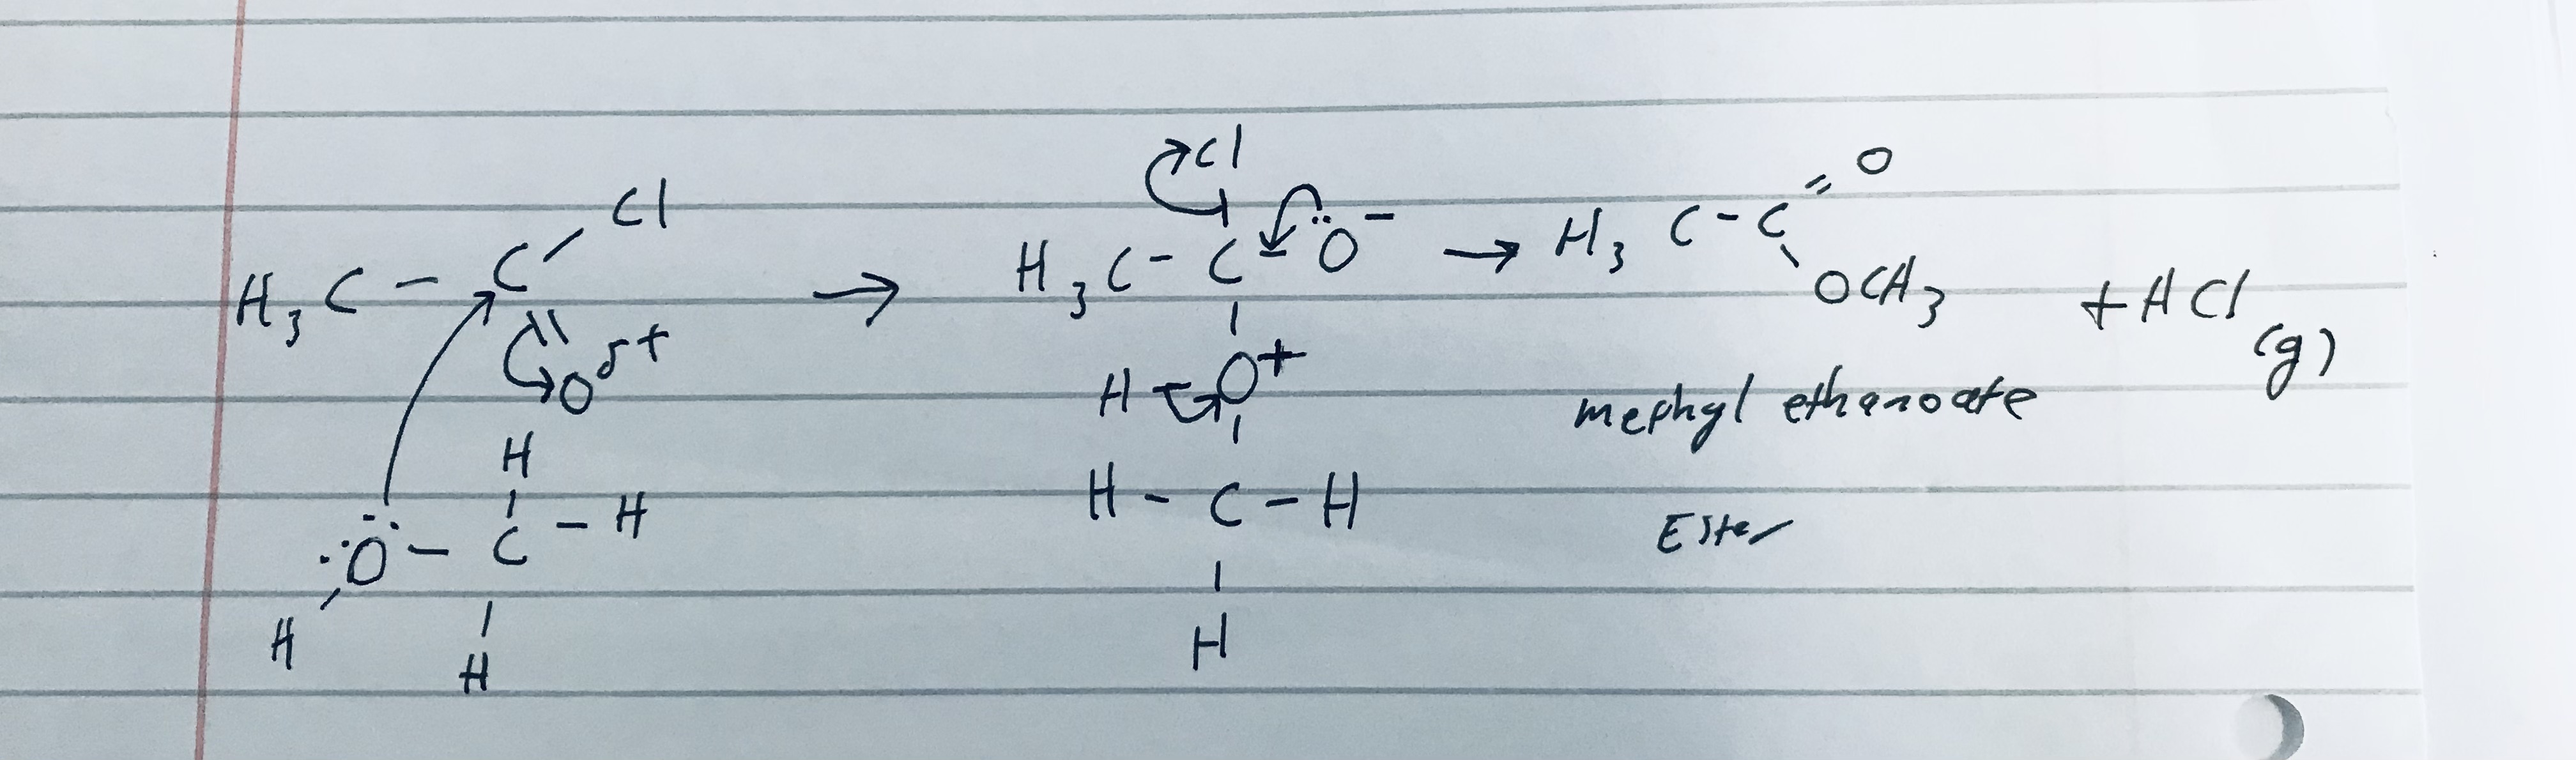 Cl
H₃C – C
O δ+
H
:Ö – C – H
H
H
→
Cl
H₃C – C – Ö⁻
O+
H
H – C – H
H
→
O
H₃C – C
OCH₃
+ HCl (g)
mephyl ethanoate
Ester